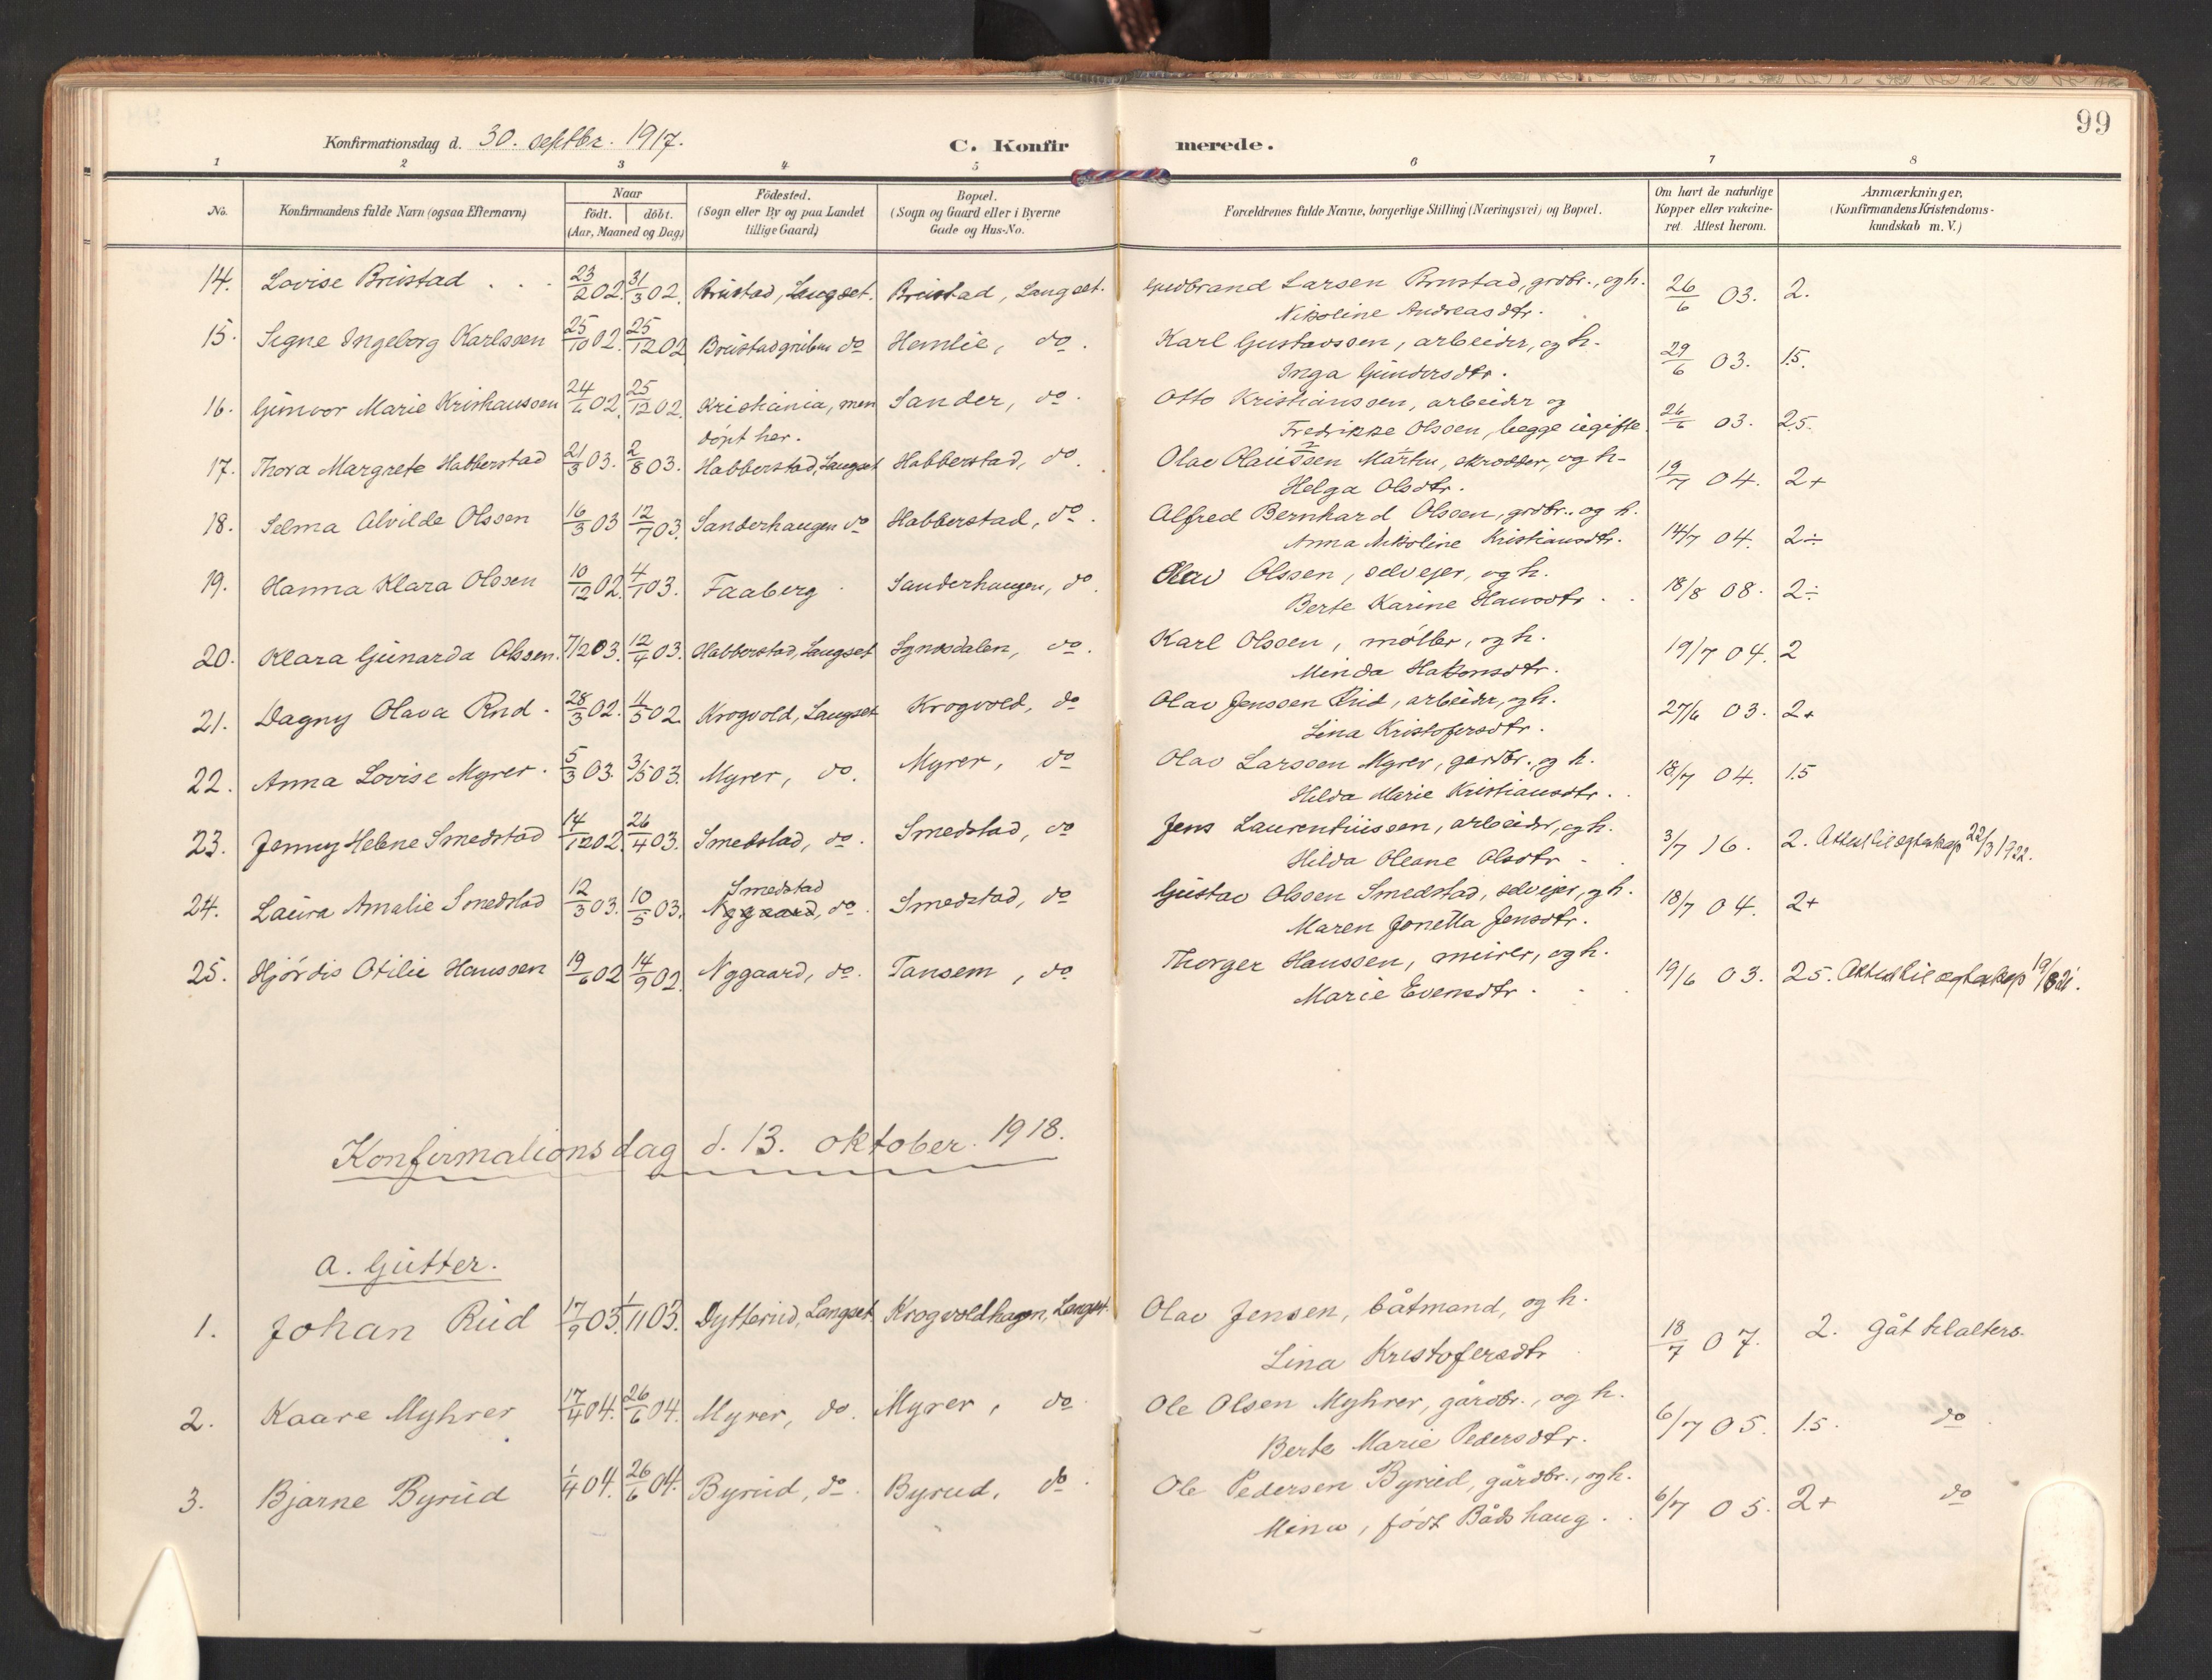 99
Konfirmationsdag d. 30. septbr. 1917. C. Konfir merede.
1 2 3 4 5 6 7 8
No. Konfirmandens fulde Navn (ogsaa Efternavn) Naar födt. döbt. (Aar, Maaned og Dag) Födested. (Sogn eller By og paa Landet tillige Gaard) Bopæl. (Sogn og Gaard eller i Byerne Gade og Hus-No. Forældrenes fulde Navne, borgerlige Stilling (Næringsvei) og Bopæl. Om havt de naturlige Kopper eller vakcineret. Attest herom. Anmærkninger. (Konfirmandens Kristendomskundskab m. V.)
14. Lovise Brustad . . . 23/2 02. 31/3 02. Brustad, Langset. Brustad, Langset. Gudbrand Larsen Brustad, grdbr., og h. 26/6 03. 2.
Nikoline Andreasdtr.
15. Signe Ingeborg Karlssen 25/10 02. 25/12 02 Brustadgruben do Hemlie, do. Karl Gustavssen, arbeider, og h. 29/6 03. 1.5.
Inga Gundersdtr.
16. Gunvor Marie Kristianssen 24/6 02. 25/12 02. Kristiania, men Sander, do. Otto Kristianssen, arbeider og 26/6 03. 2.5.
døpt her. Fredrikke Olssen, begge ugifte.
17. Thora Margrete Habberstad 21/3 03. 2/8 03. Habberstad, Langset Habberstad, do. Olav Olaussen Martin, skrædder, og h. 19/7 04. 2+
Helga Olsdtr.
18. Selma Alvilde Olssen 16/3 03 12/7 03. Sanderhaugen do Habberstad, do. Alfred Bernhard Olssen, grdbr. og h. 14/7 04. 2÷
Anna Nikoline Kristiansdtr.
19. Hanna Klara Olssen 10/12 02. 4/1 03. Faaberg Sanderhaugen, do. Olav Olssen, selveier, og h. 18/8 08. 2÷
Berte Karine Hansdtr.
20. Klara Gunarda Olssen. 7/12 03. 12/4 03. Habberstad, Langset Sgnosdalen, do. Karl Olssen, møller, og h. 19/7 04. 2
Minda Hakonsdtr.
21. Dagny Olava Rud. 28/3 02. 4/5 02. Krogvold, Langset Krogvold, do Olav Jenssen Rud, arbeider, og h. 27/6 03. 2+
Lina Kristofersdtr.
22. Anna Lovise Myrer. 5/3 03. 3/5 03. Myrer, do. Myrer, do Olav Larssen Myrer, gardbr. og h. 18/7 04. 1.5
Hilda Marie Kristiansdtr.
23. Jenny Helene Smedstad 14/12 02. 26/4 03. Smedstad, do. Smedstad, do Jens Laurentiussen, arbeider, og h. 3/7 16. 2. Attest til egteskap 22/3 1922.
Hilda Oleane Olsdtr
24. Laura Amalie Smedstad 12/3 03. 10/5 03. Smedstad Nygaard, do. Smedstad, do Gustav Olssen Smedstad, selveier, og h. 18/7 04. 2+
Maren Jonetta Jensdtr.
25. Hjørdis Otilie Hanssen 19/6 02 14/9 02. Nygaard, do. Tansem, do Thorger Hanssen, murer, og h. 19/6 03. 2.5. Attest til egteskap 19/8 21.
Marie Evensdtr.
Konfirmationsdag d. 13. oktober. 1918.
a. Gutter.
1. Johan Rud 17/9 03. 1/11 03. Dytterud, Langset. Krogvoldhagen, Langset. Olav Jensen, båtmand, og h. 18/7 07. 2. Gåt til alters.
Lina Kristofersdtr
2. Kaare Myhrer 17/4 04. 26/6 04. Myrer, do. Myrer, do. Ole Olsen Myhrer, gårdbr., og h. 6/7 05. 1.5. do.
Berte Marie Pedersdtr.
3. Bjarne Byrud 1/4 04. 26/6 04. Byrud, do. Byrud, do. Ole Pedersen Byrud, gårdbr., og h. 6/7 05. 2+ do
Mina, født Bådshaug.